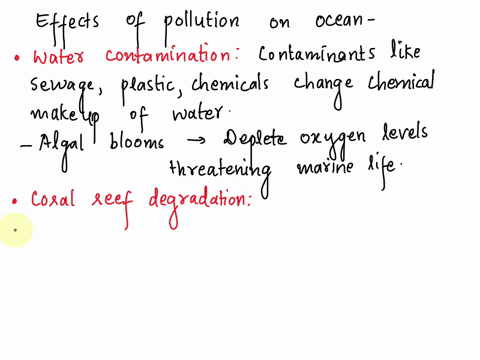 Effects of pollution on ocean-
• Water contamination: Contaminants like
sewage, plastic, chemicals change chemical
makeup of water.
- Algal blooms → Deplete oxygen levels
threatening marine life.
• Coral reef degradation:
•